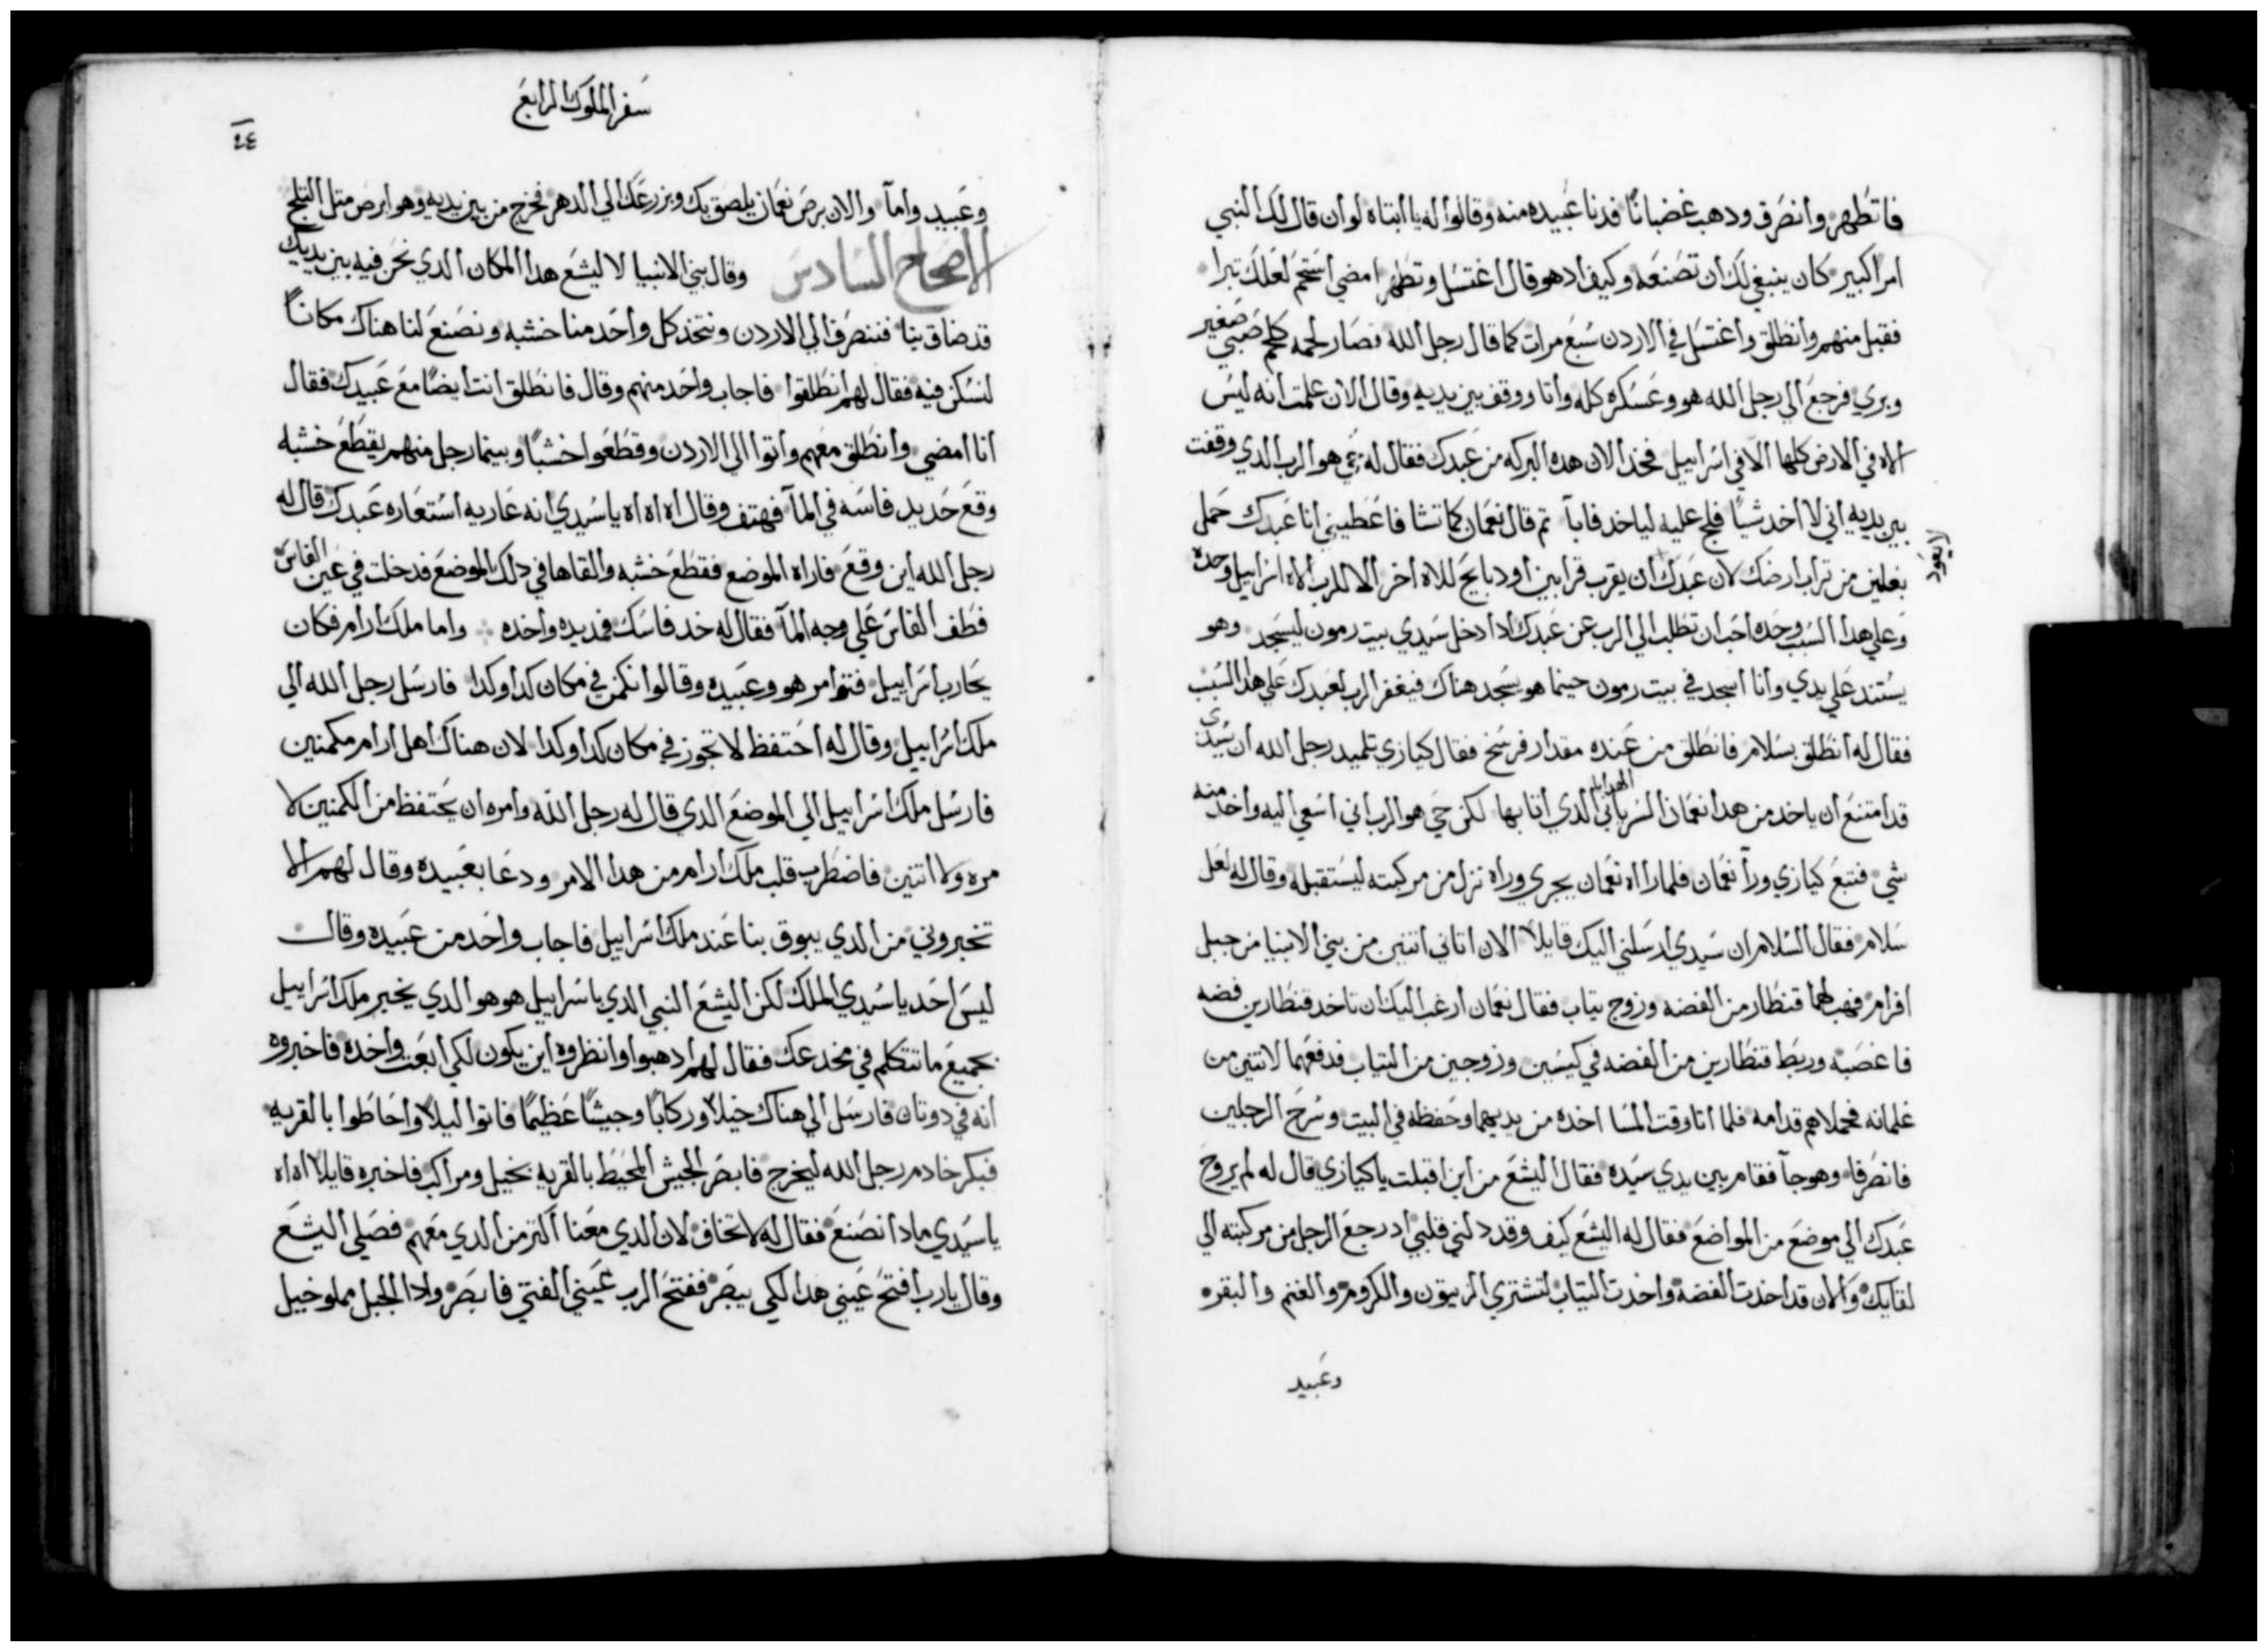 فاتطهر وانصرف ودهب غضبانًا فدنا عبيده منه وقالوا له يا ابتاه لو ان قال لك النبي
امرا كبير كان ينبغي لك ان تصنعه وكيف ادهو قال اغتسل وتطهر امضي استحم لعلك تبرا
فقبل منهم وانطلق واغتسل في الاردن سبع مرات كما قال رجل الله فصار لحمه كلحم صبي صغير
وبري فرجع الي رجل الله هو وعسكره كله واتا ووقف بين يديه وقال الان علمت انه ليس
الاه في الارض كلها الا في اسراييل فخذ الان هده البركه من عبدك فقال له حي هو الرب الدي وقفت
بين يديه اني لا اخد شيا فلج عليه لياخد فابآ تم قال نعمان كما تشا فاعطيني انا عبدك حمل
بغلين من تراب ارضك لان عبدك ان يقرب قرابين او دبايح للاه اخر الا للرب الاه اسراييل وحده
لا يعود
وعلي هدا السبب وحده احب ان تطلب الي الرب عن عبدك ادا دخل سيدي بيت رمون ليسجد وهو
يستند علي يدي وانا اسجد في بيت رمون حينما هو يسجد هناك فيغفر الرب لعبدك علي هدا السبب
فقال له انطلق بسلام فانطلق من عنده مقدار فرسخ فقال كيازي تلميد رجل الله ان سيدي
قد امتنع ان ياخد من هدا نعمان السرياني الهدايا الدي اتا بها لكن حي هو الرب اني اسعي اليه واخد منه
شي فتبع كيازي ورآ نعمان فلما راه نعمان يجري وراه نزل من مركبته ليستقبله وقال له لعل
سلام فقال السلام ان سيدي ارسلني اليك قايلا الان اتاني اتنين من بني الانبيا من جبل
افرام فهب لهما قنطار من الفضه وزوج تياب فقال نعمان ارغب اليك ان تاخد قنطارين فضه
فاغصبه وربط قنطارين من الفضه في كيسين وزوجين من التياب فدفعهما لاتنين من
غلمانه فحملاهم قدامه فلما اتا وقت المسا اخده من يديهما وحفظه في البيت وسرح الرجلين
فانصرفا وهو جآ فقام بين يدي سيده فقال اليشع من اين اقبلت يا كيازي قال له لم يروح
عبدك الي موضع من المواضع فقال له اليشع كيف وقد دلني قلبي اد رجع الرجل من مركبته الي
لقايك والان قد اخدت الفضه واخدت التياب لتشتري الزيتون والكروم والغنم والبقر
وعبيد
سفر الملوك الرابع
٢٤
وعبيد وامآ والان برص نعمان يلصق بك وبزرعك الي الدهر فخرج من بين يديه وهو ابرص متل التلج
الاصحاح السادس وقال بني الانبيا لاليشع هدا المكان الدي نحن فيه بين يديك
قد ضاق بنا فننصرف الي الاردن ونتخد كل واحد منا خشبه ونصنع لنا هناك مكانًا
لنسكن فيه فقال لهم انطلقوا فاجاب واحد منهم وقال فانطلق انت ايضًا مع عبيدك فقال
انا امضي وانطلق معهم واتوا الي الاردن وقطعوا خشبًا وبينما رجل منهم يقطع خشبه
وقع حديد فاسه في المآ فهتف وقال اه اه اه يا سيدي انه عاريه استعاره عبدك قال له
رجل الله اين وقع فاراه الموضع فقطع خشبه والقاها في دلك الموضع فدخلت في عين الفاس
فطف الفاس علي وجه المآ فقال له خد فاسك فمد يده واخده واما ملك ارام فكان
يحارب اسراييل فتوامر هو وعبيده وقالوا نكمن في مكان كدا وكدا فارسل رجل الله الي
ملك اسراييل وقال له احتفظ لا تجوز في مكان كدا وكدا لان هناك اهل ارام مكمنين
فارسل ملك اسراييل الي الموضع الدي قال له رجل الله وامره ان يحتفظ من الكمنين لا
مره ولا اتنين فاضطرب قلب ملك ارام من هدا الامر ودعا بعبيده وقال لهم الا
تخبروني من الدي يبوق بنا عند ملك اسراييل فاجاب واحد من عبيده وقال
ليس احد يا سيدي الملك لكن اليشع النبي الدي باسراييل هو هو الدي يخبر ملك اسراييل
بجميع ما تتكلم في مخدعك فقال لهم ادهبوا وانظروه اين يكون لكي ابعت واخده فاخبروه
انه في دوتان فارسل الي هناك خيلًا وركابًا وجيشًا عظيمًا فاتوا ليلًا واحاطوا بالقريه
فبكر خادم رجل الله ليخرج فابصر الجيش المحيط بالقريه بخيل ومراكب فاخبره قايلا اه اه
يا سيدي مادا نصنع فقال له لا تخاف لان الدي معنا اكتر من الدي معهم فصلي اليشع
وقال يا رب افتح عيني هدا لكي يبصر ففتح الرب عيني الفتي فابصر وادا الجبل مملو خيل